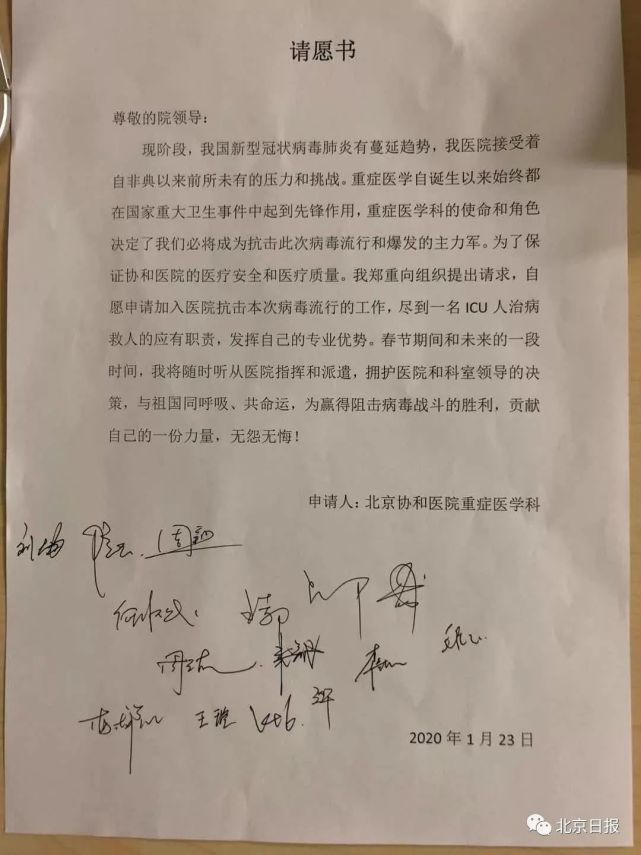 请愿书
尊敬的院领导：
现阶段，我国新型冠状病毒肺炎有蔓延趋势，我医院接受着
自非典以来前所未有的压力和挑战。重症医学自诞生以来始终都
在国家重大卫生事件中起到先锋作用，重症医学科的使命和角色
决定了我们必将成为抗击此次病毒流行和爆发的主力军。为了保
证协和医院的医疗安全和医疗质量。我郑重向组织提出请求，自
愿申请加入医院抗击本次病毒流行的工作，尽到一名 ICU 人治病
救人的应有职责，发挥自己的专业优势。春节期间和未来的一段
时间，我将随时听从医院指挥和派遣，拥护医院和科室领导的决
策，与祖国同呼吸、共命运，为赢得阻击病毒战斗的胜利，贡献
自己的一份力量，无怨无悔！
申请人：北京协和医院重症医学科
2020 年 1 月 23 日
北京日报